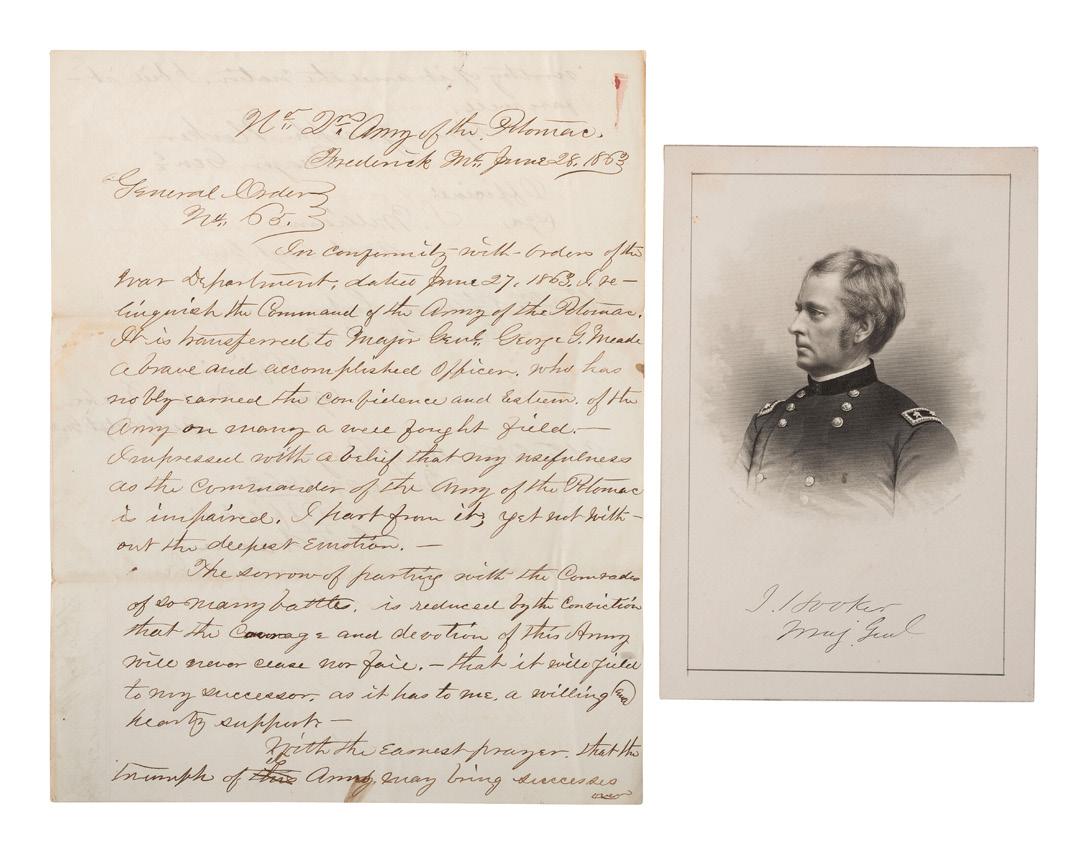 Hd. Qrs Army of the Potomac.
Frederick Md. June 28. 1863
General Orders
No. 65.
In conformity with orders of the
War Department, dated June 27. 1863. I re-
linquish the Command of the Army of the Potomac.
It is transferred to Major Genl. George G. Meade
a brave and accomplished Officer, who has
nobly earned the confidence and Esteem. of the
Army on many a well fought field.—
Impressed with a belief that my usefulness
as the commander of the Army of the Potomac
is impaired. I part from it, yet not with-
out the deepest Emotion.—
The sorrow of parting with the Comrades
of so many battles. is reduced by the conviction
that the Courage and devotion of this Army
will never cease nor fail.— that it will yield
to my successor, as it has to me. a willing and
hearty support.—
With the Earnest prayer. that the
triumph of this Army may bring successes
over
J. Hooker
Maj. Genl